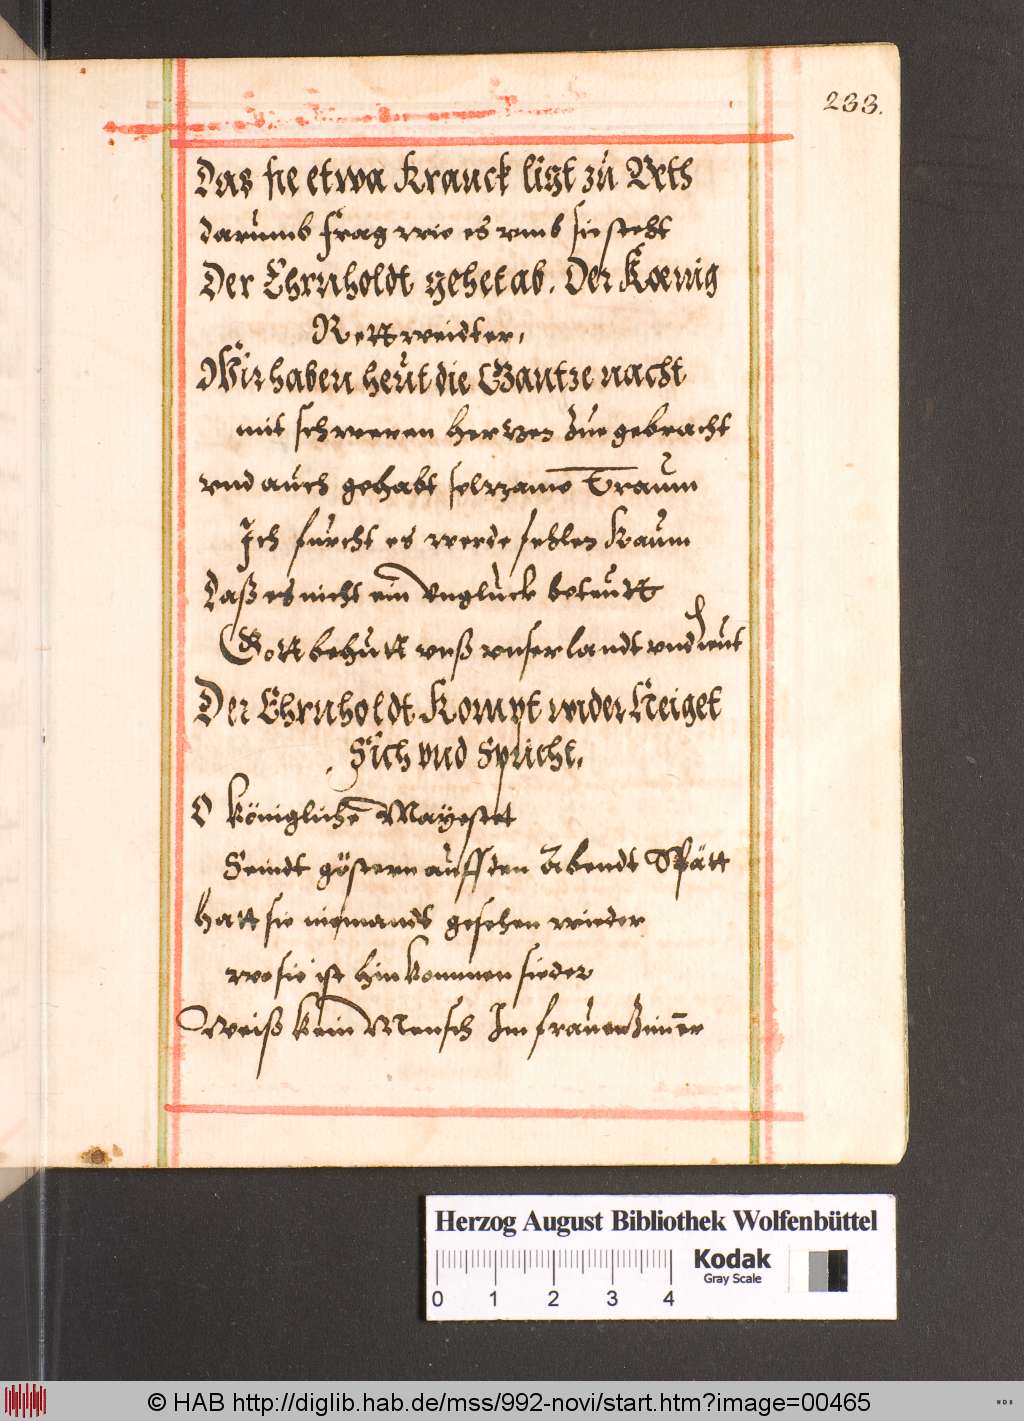 233.
Das sie etwa Kranck ligt zu Beth
darumb frag wie es vmb sie steht
Der Ehrnholdt gehet ab. Der Kœnig
Rett weidter,
Wir haben heut die Gantze nacht
mit schweren Hertzen Zue gebracht
vnd auch gehabt selzame Traum
Ich furcht es werde fehlen Kaum
daß es nicht ein Vngluck beteutt
Gott behutt vnß vnser landt vnd leut
Der Ehrnholdt Kompt wider Neiget
Sich vnd Spricht.
O Königliche Mayestet
Seindt göstern auff den Abendt Spätt
Hatt sie niemandt gesehen wieder
wo sie ist hin kommen sieder
Weiß kein Mensch Im frauen Zimer
Herzog August Bibliothek Wolfenbüttel
Kodak
Gray Scale
0 1 2 3 4
© HAB http://diglib.hab.de/mss/992-novi/start.htm?image=00465